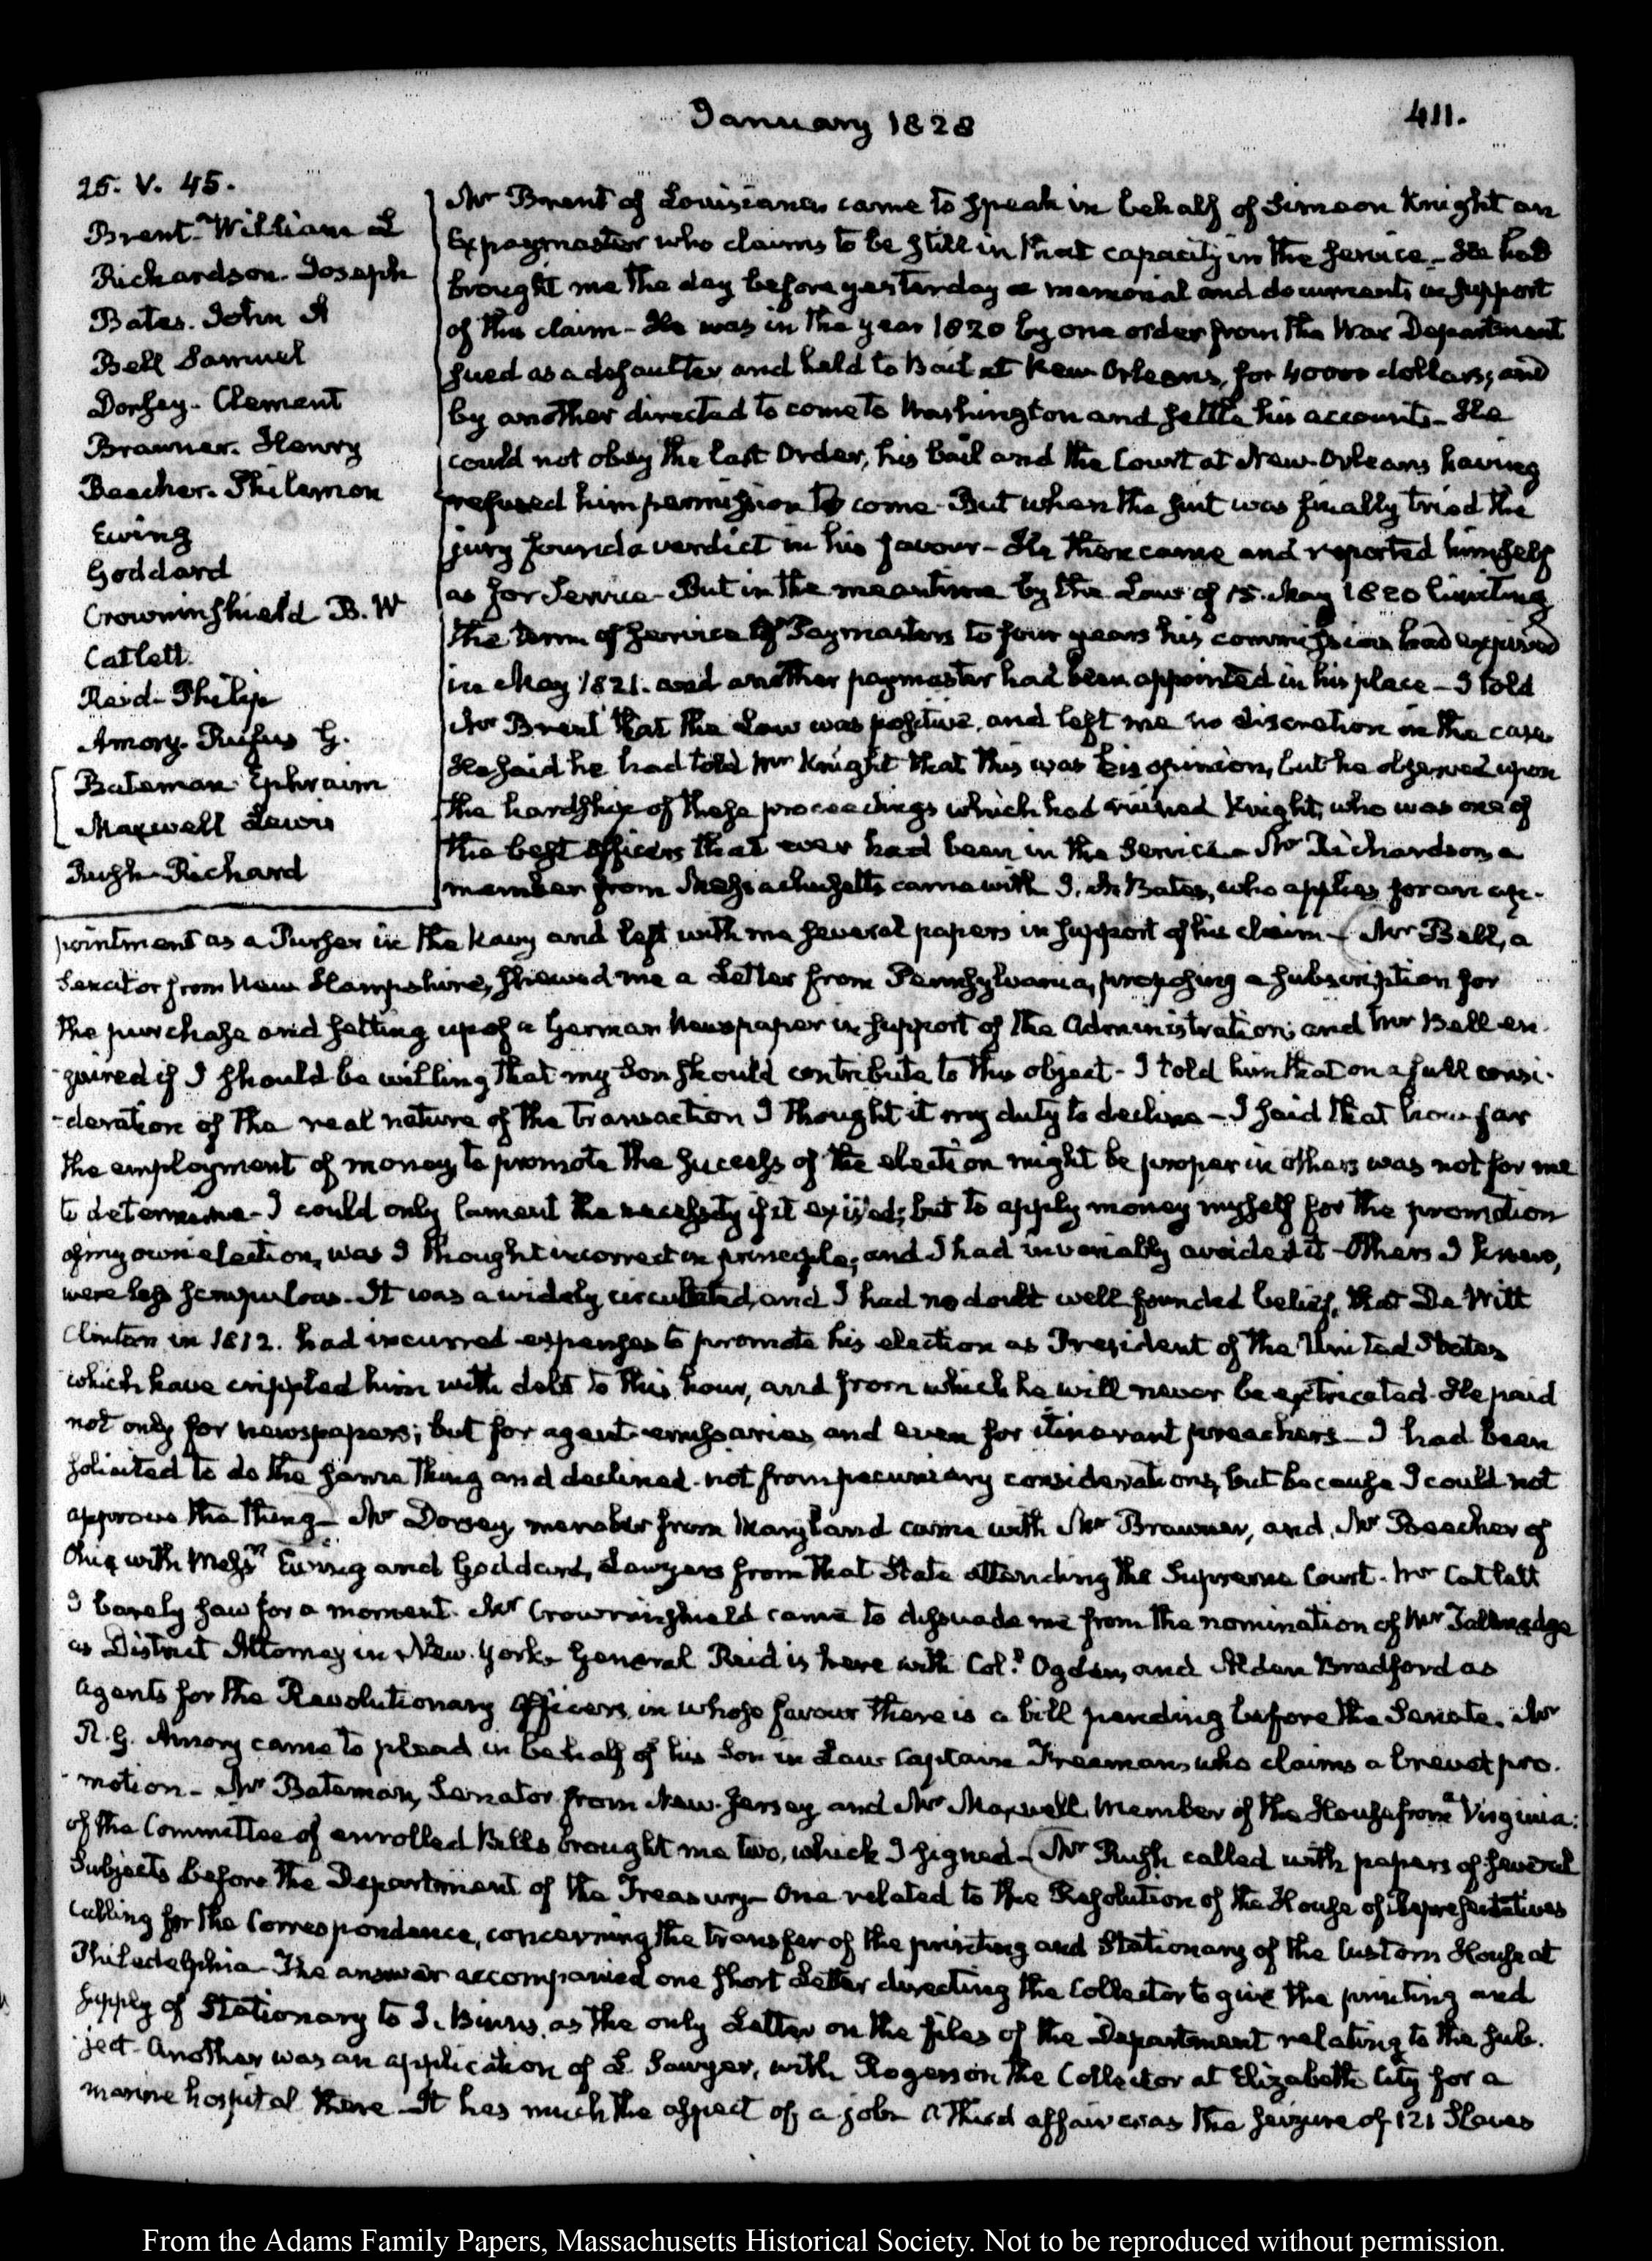 January 1828
411.
25. V. 45.
Brent. William L
Richardson. Joseph
Bates. John A
Bell Samuel
Dorsey. Clement
Brawner. Henry
Beecher. Philemon
Ewing
Goddard
Crowninshield B. W
Catlett.
Reid. Philip
Amory. Rufus G.
Bateman Ephraim
Maxwell Lewis
Rush Richard
Mr Brent of Louisiana came to speak in behalf of Simeon Knight an
Ex paymaster who claims to be still in that capacity in the service_ He had
brought me the day before yesterday a memorial and documents in support
of this claim- He was in the year 1820 by one order from the War Department
sued as a defaulter and held to Bail at New Orleans, for 40000 dollars; and
by another directed to come to Washington and settle his accounts_ He
could not obey the last Order, his bail and the Court at New Orleans having
refused him permission to come. But when the suit was finally tried the
jury found a verdict in his favour- He then came and reported himself
as for Service- But in the meantime by the Law of 15. May 1820 limiting
the term of service of Paymasters to four years his commission had expired
in May 1821. and another paymaster had been appointed in his place- I told
Mr Brent that the Law was positive, and left me no discretion in the case
He said he had told Mr Knight that this was his opinion, but he observed upon
the hardship of these proceedings which had ruined Knight, who was one of
the best Officers that ever had been in the Service- Mr Richardson a
member from Massachusetts came with J. A. Bates, who applies for an ap-
pointment as a Purser in the Navy and left with me several papers in support of his claim- Mr Bell, a
Senator from New Hampshire, shewed me a Letter from Pennsylvania, proposing a subscription for
the purchase and setting up of a German Newspaper in support of the Administration; and Mr Bell en-
-quired if I should be willing that my Son should contribute to this object- I told him that on a full consi-
-deration of the real nature of the transaction I thought it my duty to decline- I said that how far
the employment of money to promote the success of the election might be proper in others was not for me
to determine- I could only lament the necessity if it existed; but to apply money myself for the promotion
of my own election, was I thought incorrect in principle; and I had invariably avoided it- Others I knew,
were less scrupulous- It was a widely circulated, and I had no doubt well founded belief, that De Witt
Clinton in 1812. had incurred expenses to promote his election as President of the United States
which have crippled him with debt to this hour, and from which he will never be extricated. He paid
not only for newspapers; but for agent emissaries, and even for itinerant preachers- I had been
solicited to do the same thing and declined. not from pecuniary considerations, but because I could not
approve the thing- Mr Dorsey, member from Maryland came with Mr Brawner, and Mr Beecher of
Ohio with Messrs Ewing and Goddard, Lawyers from that State attending the Supreme Court. Mr Catlett
I barely saw for a moment. Mr Crowninshield came to dissuade me from the nomination of Mr Tallmadge
as District Attorney in New-York. General Reid is here with Col. Ogden, and Alden Bradford as
Agents for the Revolutionary Officers, in whose favour there is a bill pending before the Senate. Mr
R. G. Amory came to plead in behalf of his Son in Law Captain Freeman, who claims a brevet pro-
-motion- Mr Bateman, Senator from New-Jersey and Mr Maxwell Member of the House from Virginia:
of the Committee of enrolled Bills brought me two, which I signed- Mr Rush called with papers of several
Subjects before the Department of the Treasury- One related to the Resolution of the House of Representatives
calling for the Correspondence, concerning the transfer of the printing and Stationary of the Custom House at
Philadelphia- The answer accompanied one short Letter directing the Collector to give the printing and
supply of Stationary to J. Binns, as the only Letter on the files of the Department relating to the sub-
ject- Another was an application of L. Sawyer, with Rogerson the Collector at Elizabeth City for a
marine hospital there- It has much the aspect of a job- A third affair was the seizure of 121 Slaves
From the Adams Family Papers, Massachusetts Historical Society. Not to be reproduced without permission.